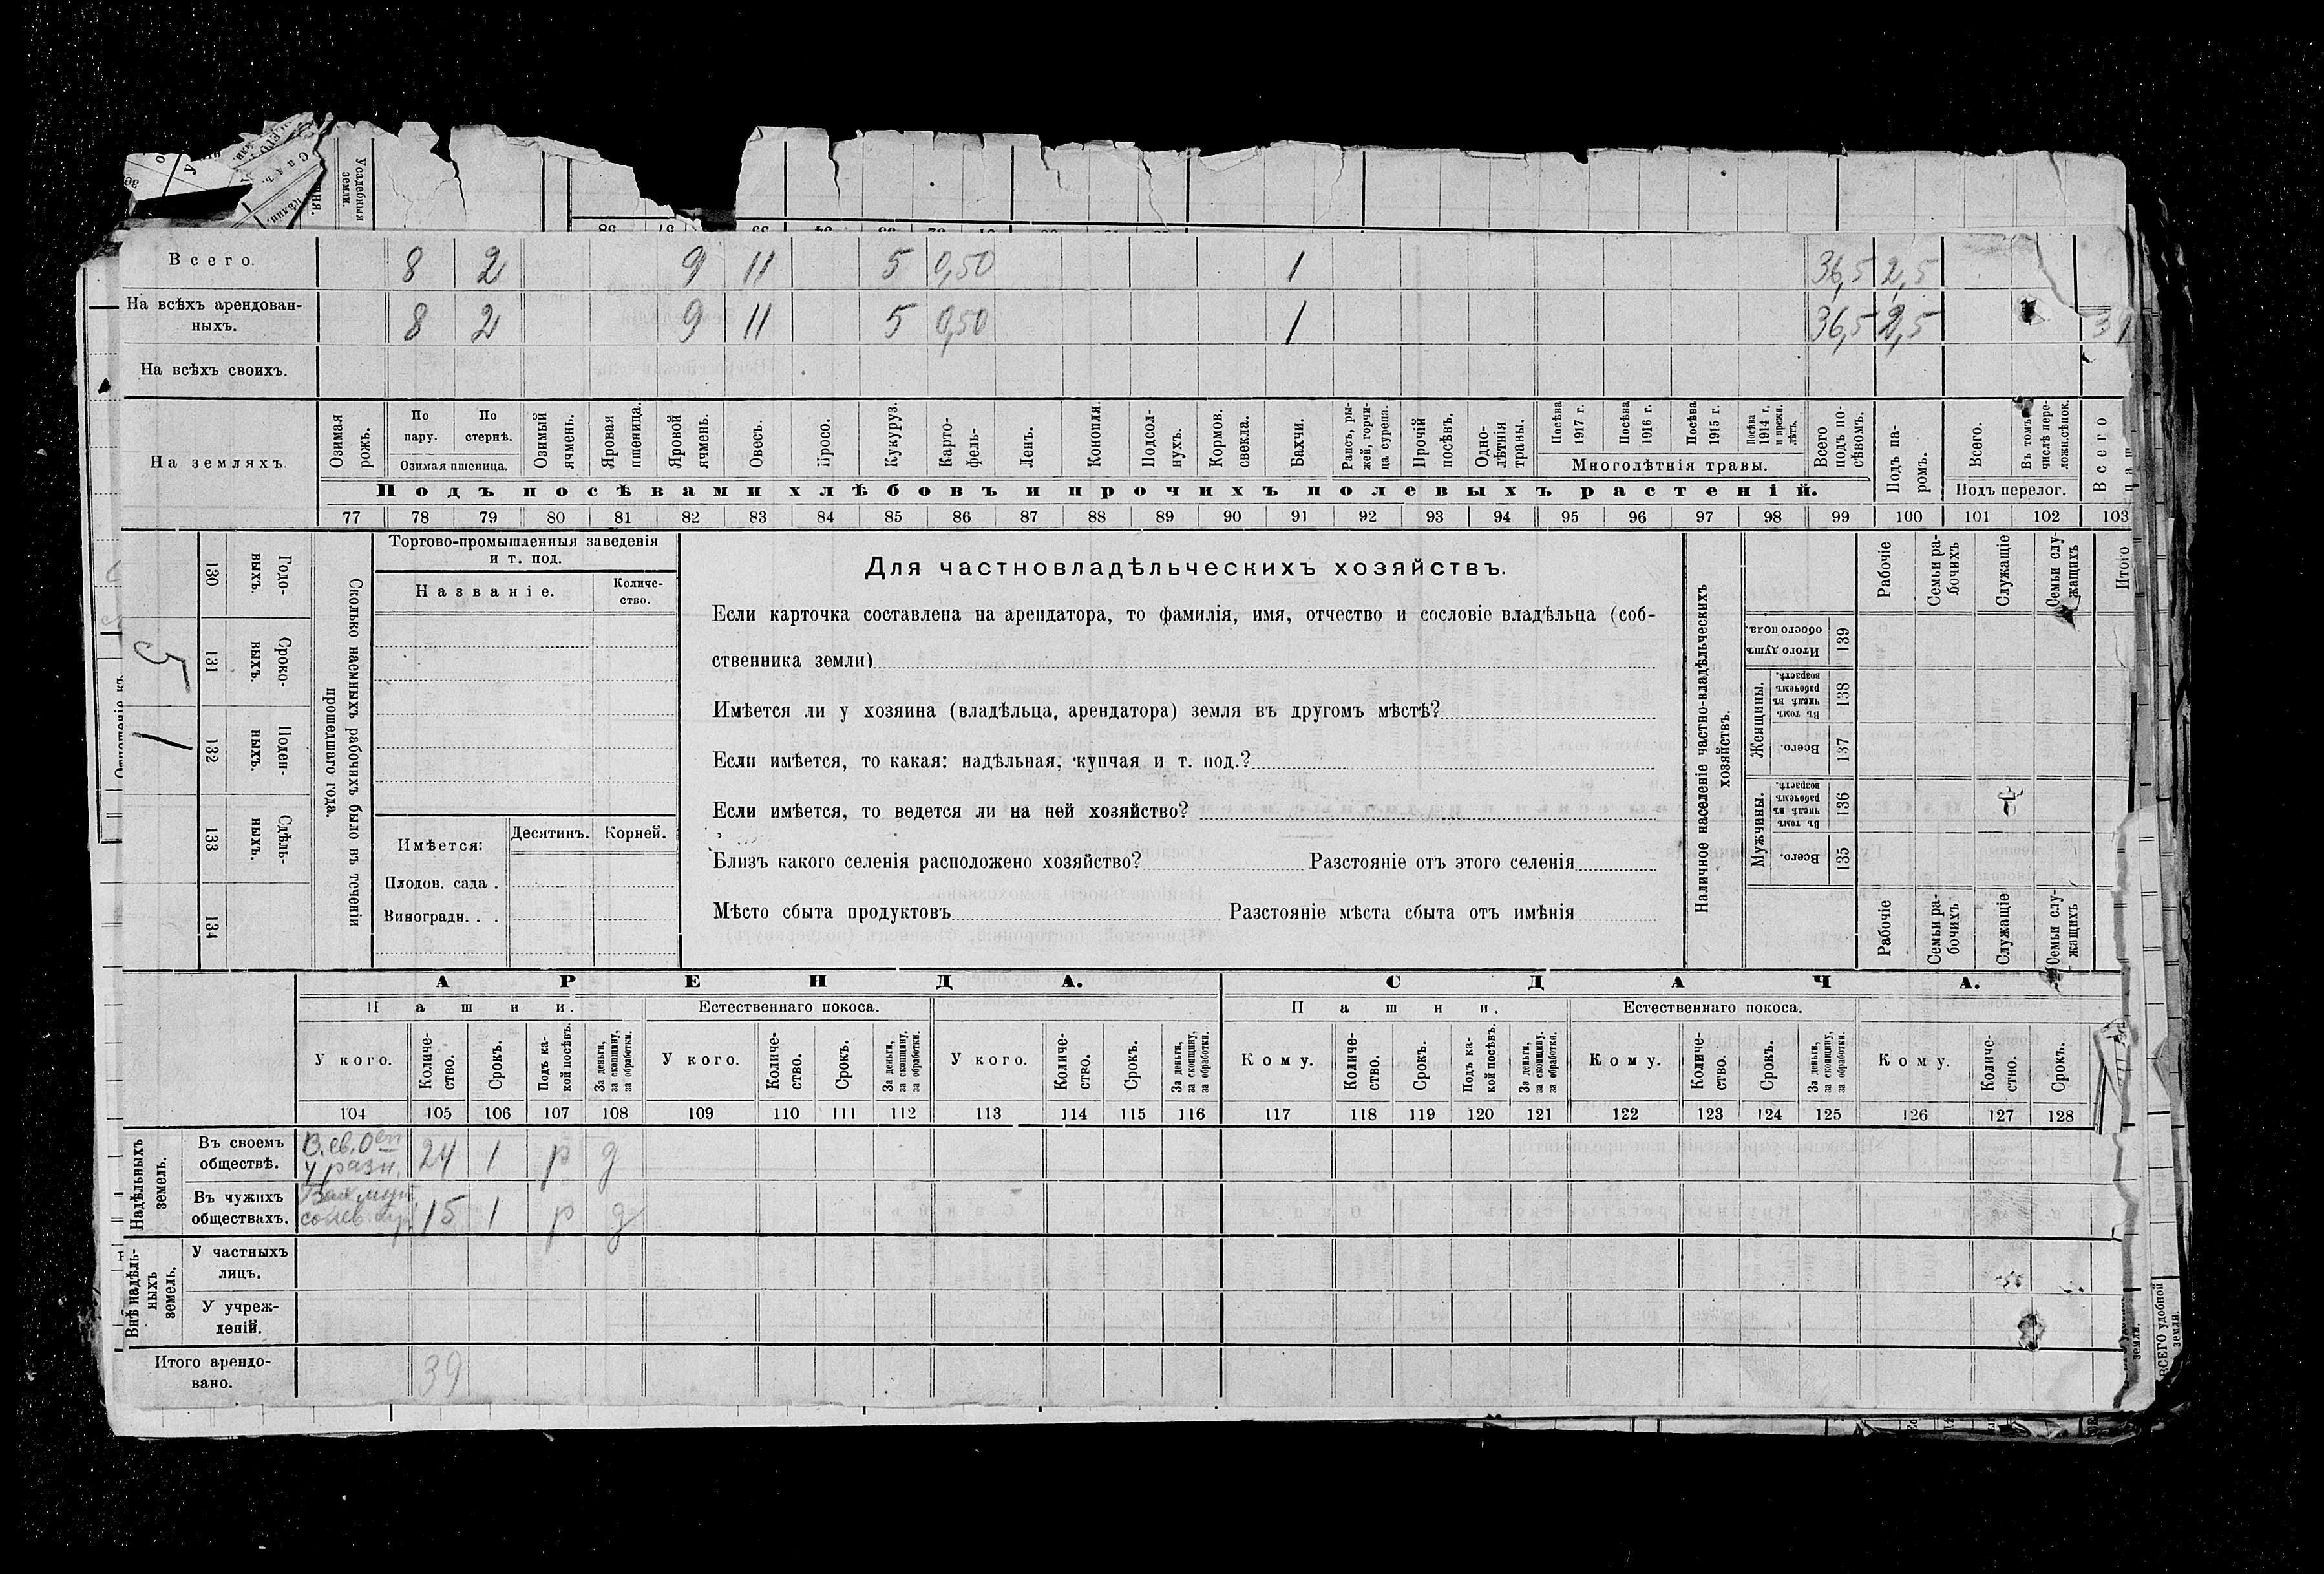 Усадебныя
земли.
Всего. 8 2 9 11 5 0,50 1 36,5 2,5
На всѣхъ арендован-
ныхъ. 8 2 9 11 5 0,50 1 36,5 2,5
На всѣхъ своихъ.
На земляхъ
Озимая рожь.
По пару.
По стернѣ.
Озимая пшеница.
Озимый ячмень.
Яровая пшеница.
Яровой ячмень.
Овесъ.
Просо.
Кукуруз.
Карто-
фель-
Ленъ.
Конопля.
Подсол-
нухъ.
Кормов.
свекла.
Бахчи.
Рапсъ, ры-
жей, горчи-
ца сурепа.
Прочій
посѣвъ.
Одно-
лѣтнія
травы.
Посѣва
1917 г.
Посѣва
1916 г.
Посѣва
1915 г.
Посѣва
1914 г.
и прежн.
лѣтъ.
Многолѣтнія травы.
Всего
подъ по-
сѣвомъ.
Подъ па-
ромъ.
Всего.
Въ томъ
числѣ пере-
лож.сѣнок.
Подъ перелог.
Всего
Подъ посѣвами хлѣбовъ и прочихъ полевыхъ растеній.
77 78 79 80 81 82 83 84 85 86 87 88 89 90 91 92 93 94 95 96 97 98 99 100 101 102 103
5
1
130 131 132 133 134
Годо-
ныхъ.
Сроко-
ныхъ.
Поден-
ныхъ.
Сдѣль-
ныхъ.
Сколько наемныхъ рабочихъ было въ теченіи
прошедшаго года.
Торгово-промышленныя заведенія
и т. под.
Названіе.
Количе-
ство.
Имѣется:
Десятинъ. Корней.
Плодов. сада .
Виноградн. . .
Для частновладѣльческихъ хозяйствъ.
Если карточка составлена на арендатора, то фамилія, имя, отчество и сословіе владѣльца (соб-
ственника земли)
Имѣется ли у хозяина (владѣльца, арендатора) земля въ другомъ мѣстѣ?
Если имѣется, то какая: надѣльная, купчая и т. под.?
Если имѣется, то ведется ли на ней хозяйство?
Близъ какого селенія расположено хозяйство? Разстояніе отъ этого селенія
Мѣсто сбыта продуктовъ Разстояніе мѣста сбыта отъ имѣнія
Наличное населеніе частно-владѣльческихъ
хозяйствъ.
Рабочіе
Семьи ра-
бочихъ
Служащіе
Семьи слу-
жащихъ
Итого
Итого душъ
обоего пола.
139
Женщины.
Въ томъ
числѣ въ
рабочемъ
возрастѣ.
138
Всего.
137
Мужчины.
Въ томъ
числѣ въ
рабочемъ
возрастѣ.
136
Всего.
135
Рабочіе
Семьи ра-
бочихъ
Служащіе
Семьи слу-
жащихъ
АРЕНДА. СДАЧА.
Пашни. Естественнаго покоса. Пашни. Естественнаго покоса.
У кого.
Количе-
ство.
Срокъ.
Подъ ка-
кой посѣвъ.
За деньги,
за скопщину,
за обработки.
У кого.
Количе-
ство.
Срокъ.
За деньги,
за скопщину,
за обработки.
У кого.
Количе-
ство.
Срокъ.
За деньги,
за скопщину,
за обработки.
Кому.
Количе-
ство.
Срокъ.
Подъ ка-
кой посѣвъ.
За деньги,
за скопщину,
за обработки.
Кому.
Количе-
ство.
Срокъ.
За деньги,
за скопщину,
за обработки.
Кому.
Количе-
ство.
Срокъ.
104 105 106 107 108 109 110 111 112 113 114 115 116 117 118 119 120 121 122 123 124 125 126 127 128
Надѣльныхъ
земель.
Въ своемъ
обществѣ. у разн. 24 1 р д
Въ чужихъ
обществахъ. 15 1 р д
Внѣ надѣль-
ныхъ
земель.
У частныхъ
лицъ.
У учреж-
деній.
Итого арендо-
вано. 39
ВСЕГО удобной
земли.